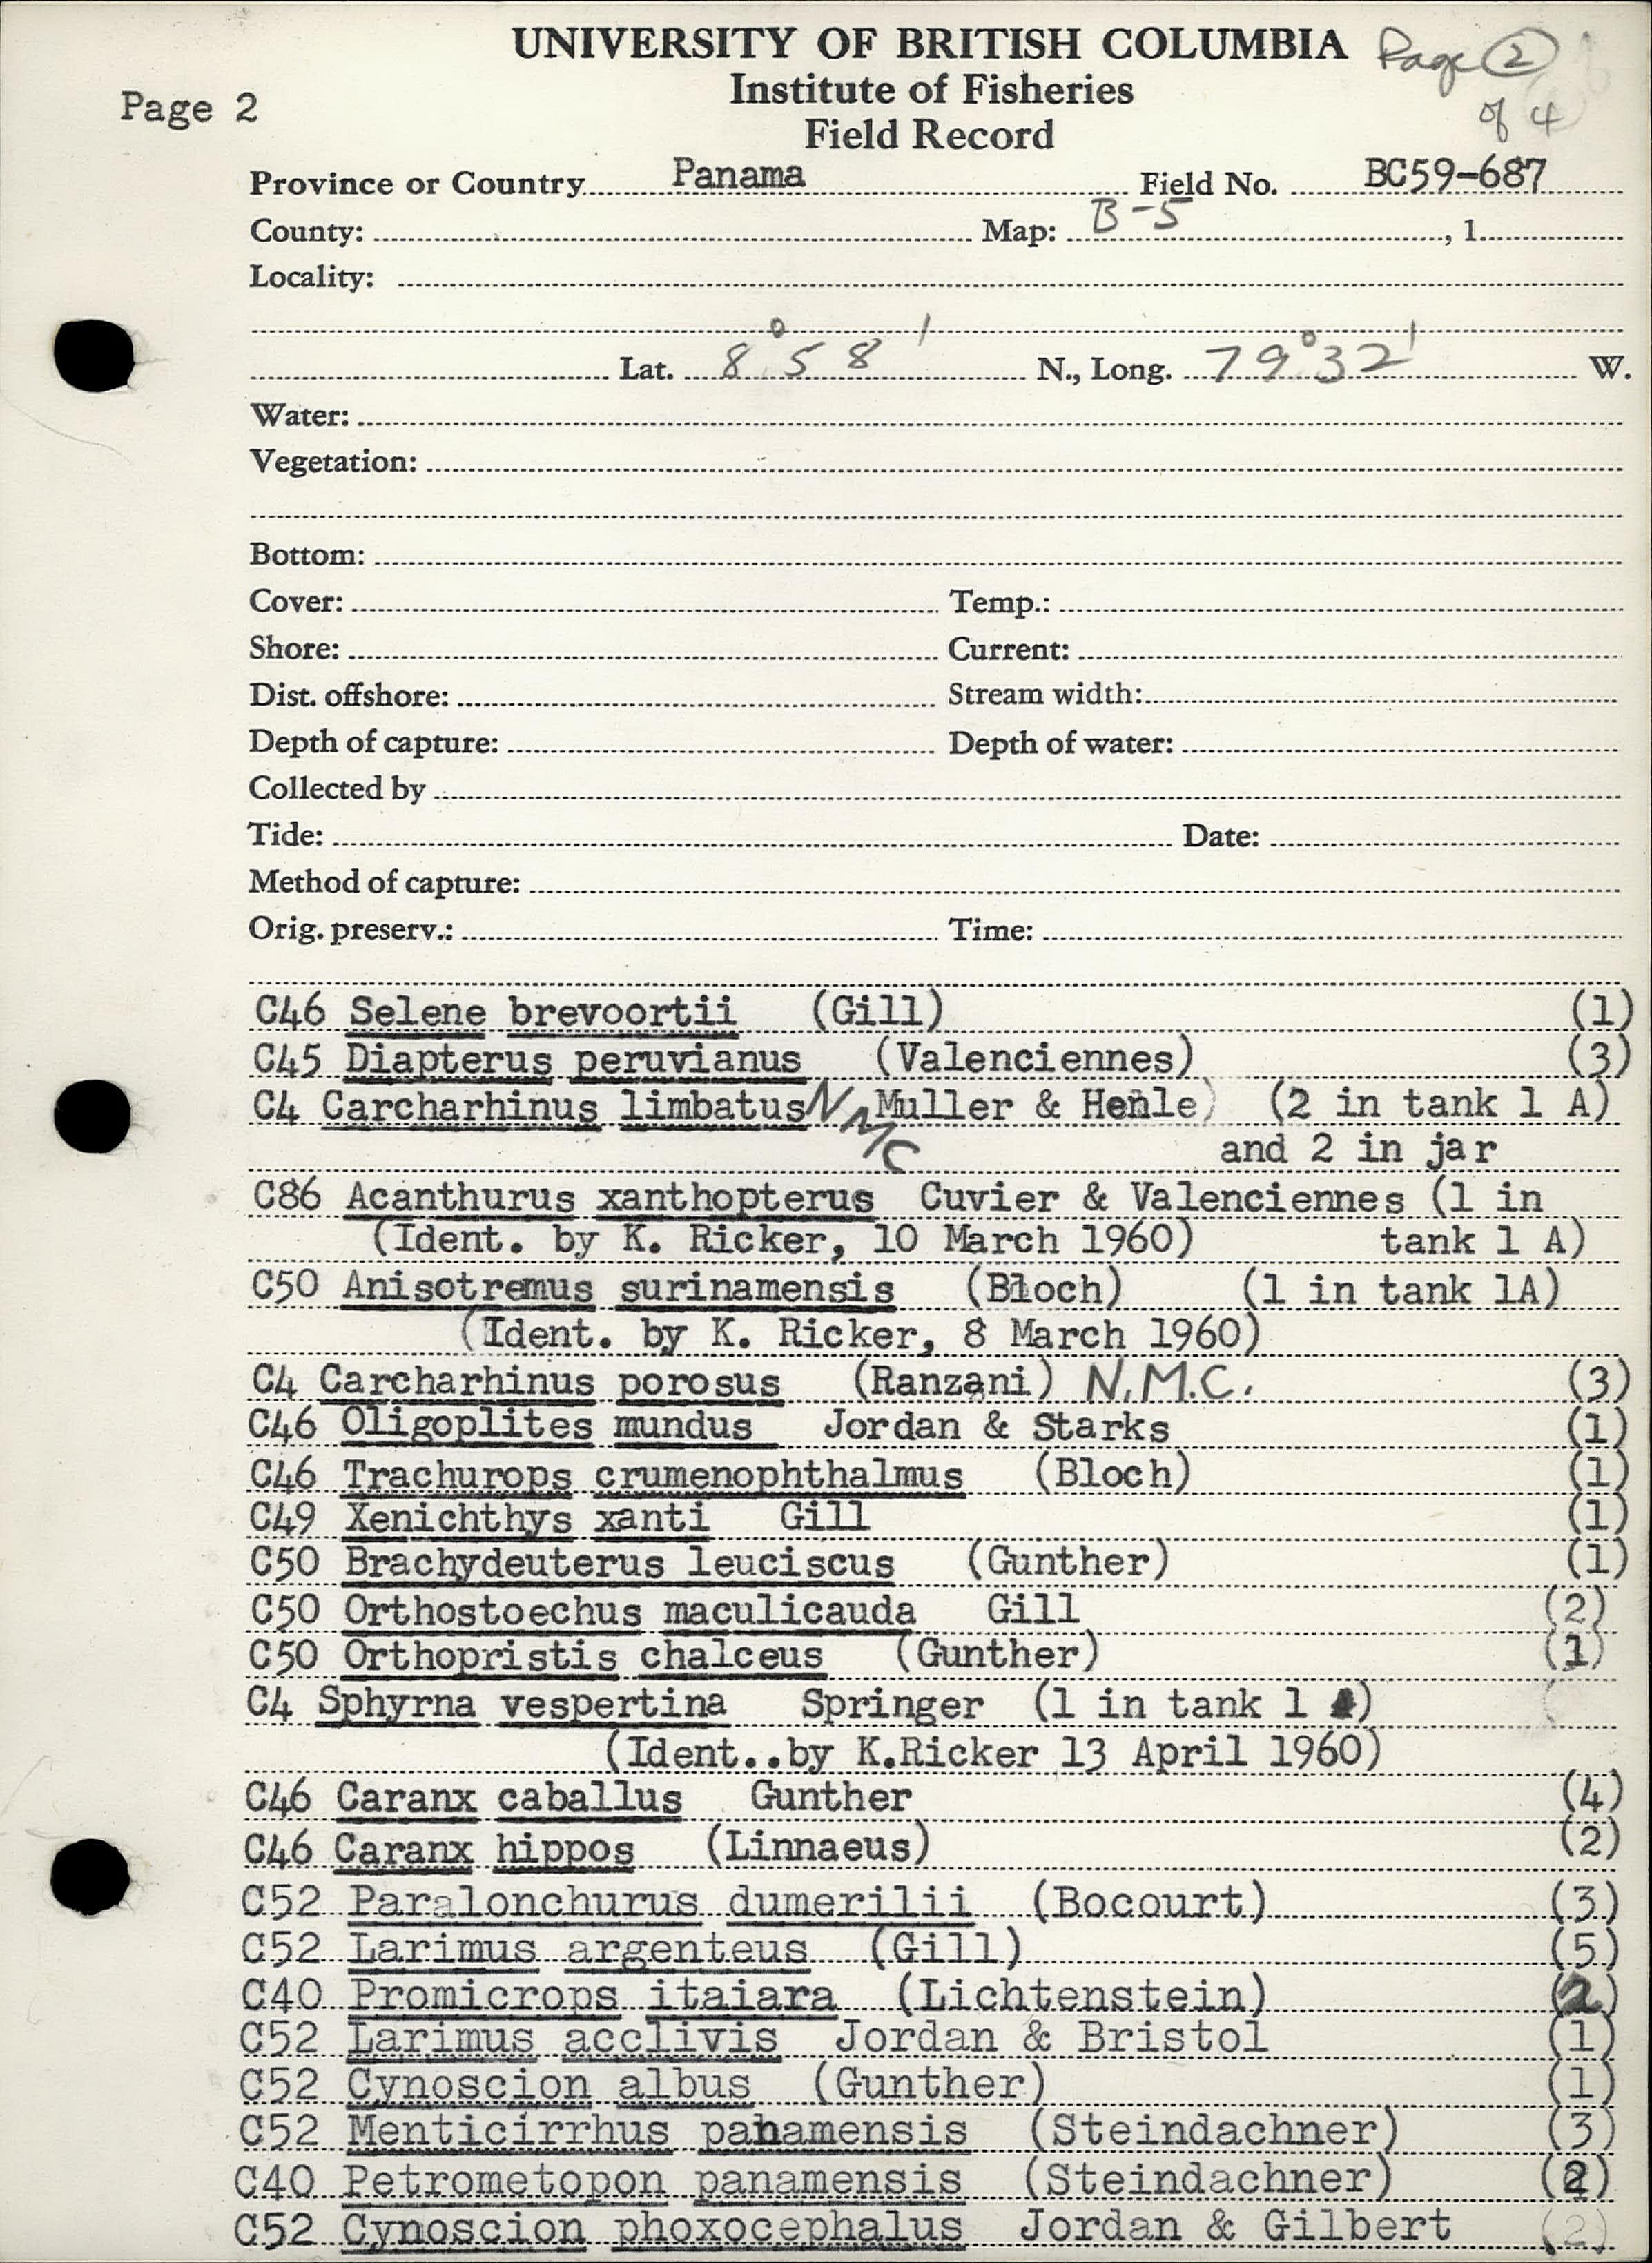 UNIVERSITY OF BRITISH COLUMBIA Page 2
Institute of Fisheries
Page 2 of 4
Field Record
Province or Country Panama Field No. BC59-687
County: Map: B-5, 1
Locality:
Lat. 8°58' N., Long. 79°32' W.
Water:
Vegetation:
Bottom:
Cover: Temp.:
Shore: Current:
Dist. offshore: Stream width:
Depth of capture: Depth of water:
Collected by
Tide: Date:
Method of capture:
Orig. preserv.: Time:
C46 Selene brevoortii (Gill) (1)
C45 Diapterus peruvianus (Valenciennes) (3)
C4 Carcharhinus limbatus NMC Muller & Henle) (2 in tank 1 A)
and 2 in jar
C86 Acanthurus xanthopterus Cuvier & Valenciennes (1 in
(Ident. by K. Ricker, 10 March 1960) tank 1 A)
C50 Anisotremus surinamensis (Bloch) (1 in tank 1A)
(Ident. by K. Ricker, 8 March 1960)
C4 Carcharhinus porosus (Ranzani) N.M.C. (3)
C46 Oligoplites mundus Jordan & Starks (1)
C46 Trachurops crumenophthalmus (Bloch) (1)
C49 Xenichthys xanti Gill (1)
C50 Brachydeuterus leuciscus (Gunther) (1)
C50 Orthostoechus maculicauda Gill (2)
C50 Orthopristis chalceus (Gunther) (1)
C4 Sphyrna vespertina Springer (1 in tank 1 )
(Ident..by K.Ricker 13 April 1960)
C46 Caranx caballus Gunther (4)
C46 Caranx hippos (Linnaeus) (2)
C52 Paralonchurus dumerilii (Bocourt) (3)
C52 Larimus argenteus (Gill) (5)
C40 Promicrops itaiara (Lichtenstein) (2)
C52 Larimus acclivis Jordan & Bristol (1)
C52 Cynoscion albus (Gunther) (1)
C52 Menticirrhus panamensis (Steindachner) (3)
C40 Petrometopon panamensis (Steindachner) (2)
C52 Cynoscion phoxocephalus Jordan & Gilbert (2)